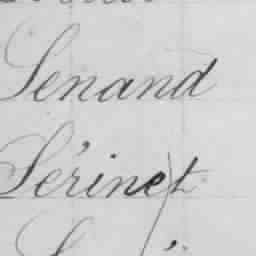 Senand
Sérinet